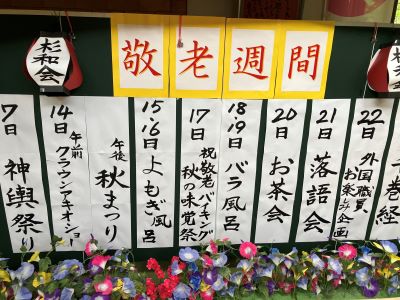 杉和会
敬老週間
7日 神輿祭り
14日 午前 クラウンアキオショー
午後 秋まつり
15・16日 よもぎ風呂
17日 祝敬老バイキング 秋の味覚祭
18・19日 バラ風呂
20日 お茶会
21日 落語会
22日 外国職員お楽しみ企画
巻経